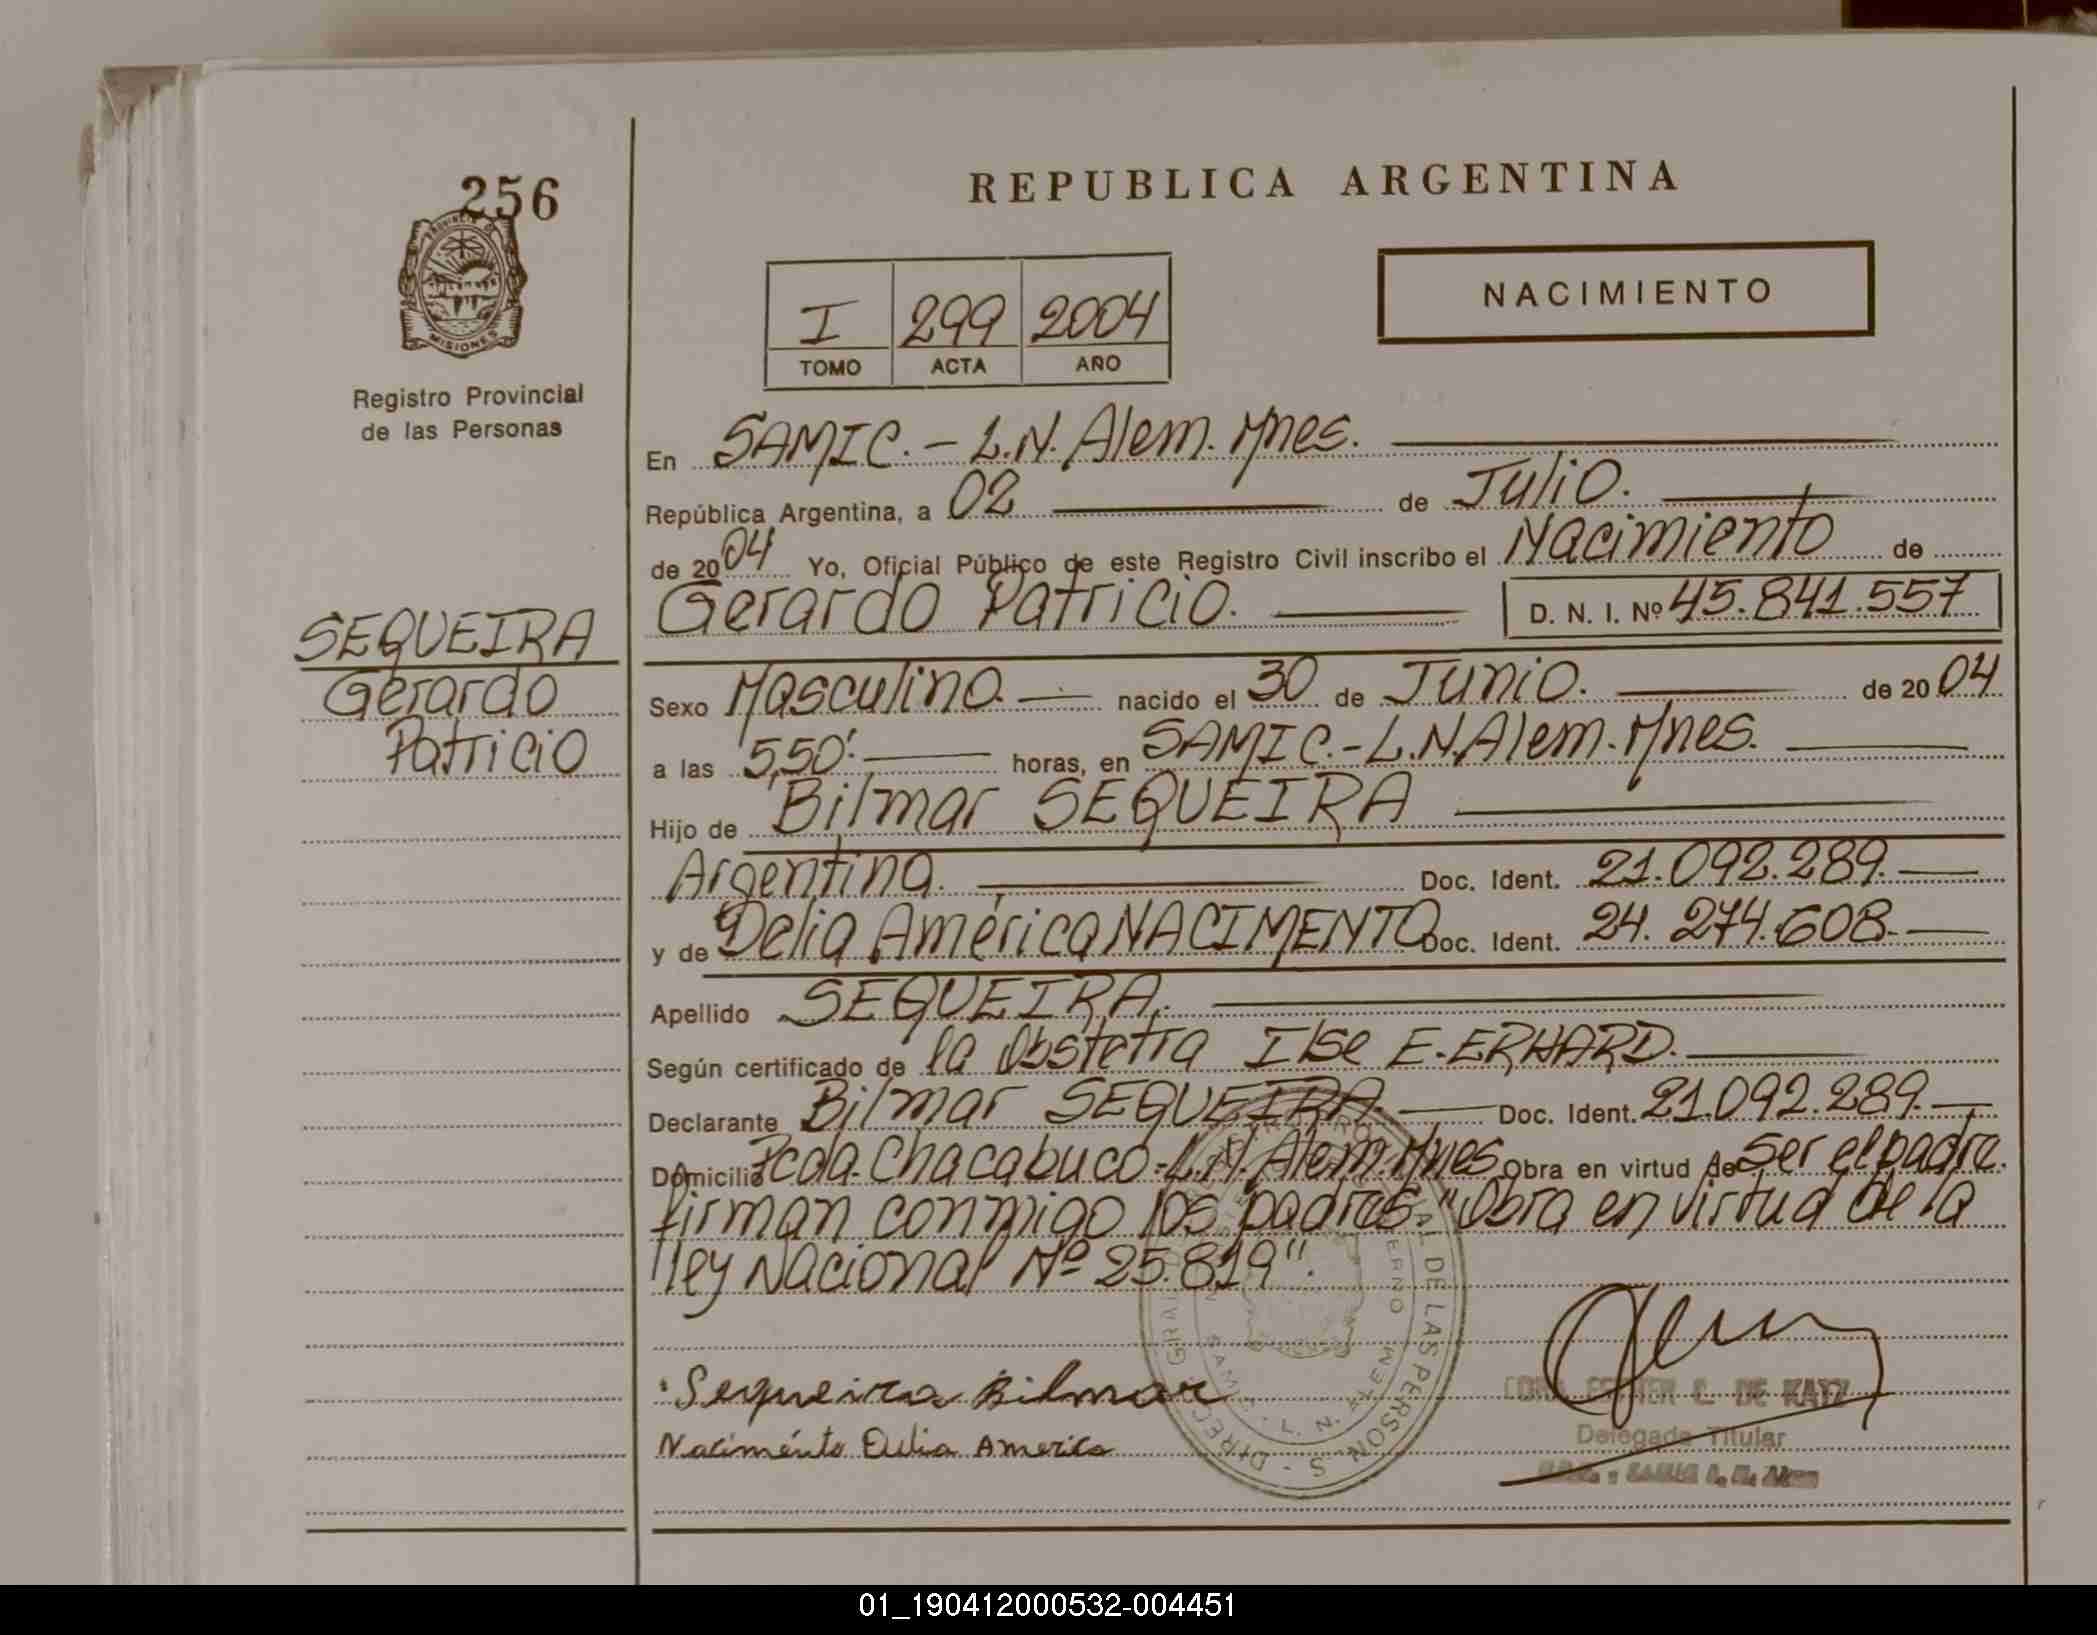 256
PROVINCIA DE
MISIONES
Registro Provincial
de las Personas
SEQUEIRA
Gerardo
Patricio
REPUBLICA ARGENTINA
I 299 2004
TOMO ACTA AÑO
NACIMIENTO
En SAMIC.- L.N. Alem. Mnes.
República Argentina, a 02 de Julio.
de 2004 Yo, Oficial Público de este Registro Civil inscribo el Nacimiento de
Gerardo Patricio. D. N. I. Nº 45.841.557
Sexo Masculino. nacido el 30 de Junio. de 2004
a las 5,50'. horas, en SAMIC.-L.N.Alem. Mnes.
Hijo de Bilmar SEQUEIRA
Argentina. Doc. Ident. 21.092.289.
y de Delia América NACIMENTO Doc. Ident. 24.274.608.
Apellido SEQUEIRA.
Según certificado de la Obstetra Ilse E. ERHARD.
Declarante Bilmar SEQUEIRA. Doc. Ident. 21.092.289.
Domicilio Pcda. Chacabuco-L.N. Alem. Mnes. Obra en virtud de ser el padre.
firman conmigo los padres "Obra en virtud de la
ley Nacional Nº 25.819".
Sequeira Bilmar
Nacimento Delia America
ESTHER C. DE KATZ
Delegada Titular
01_190412000532-004451